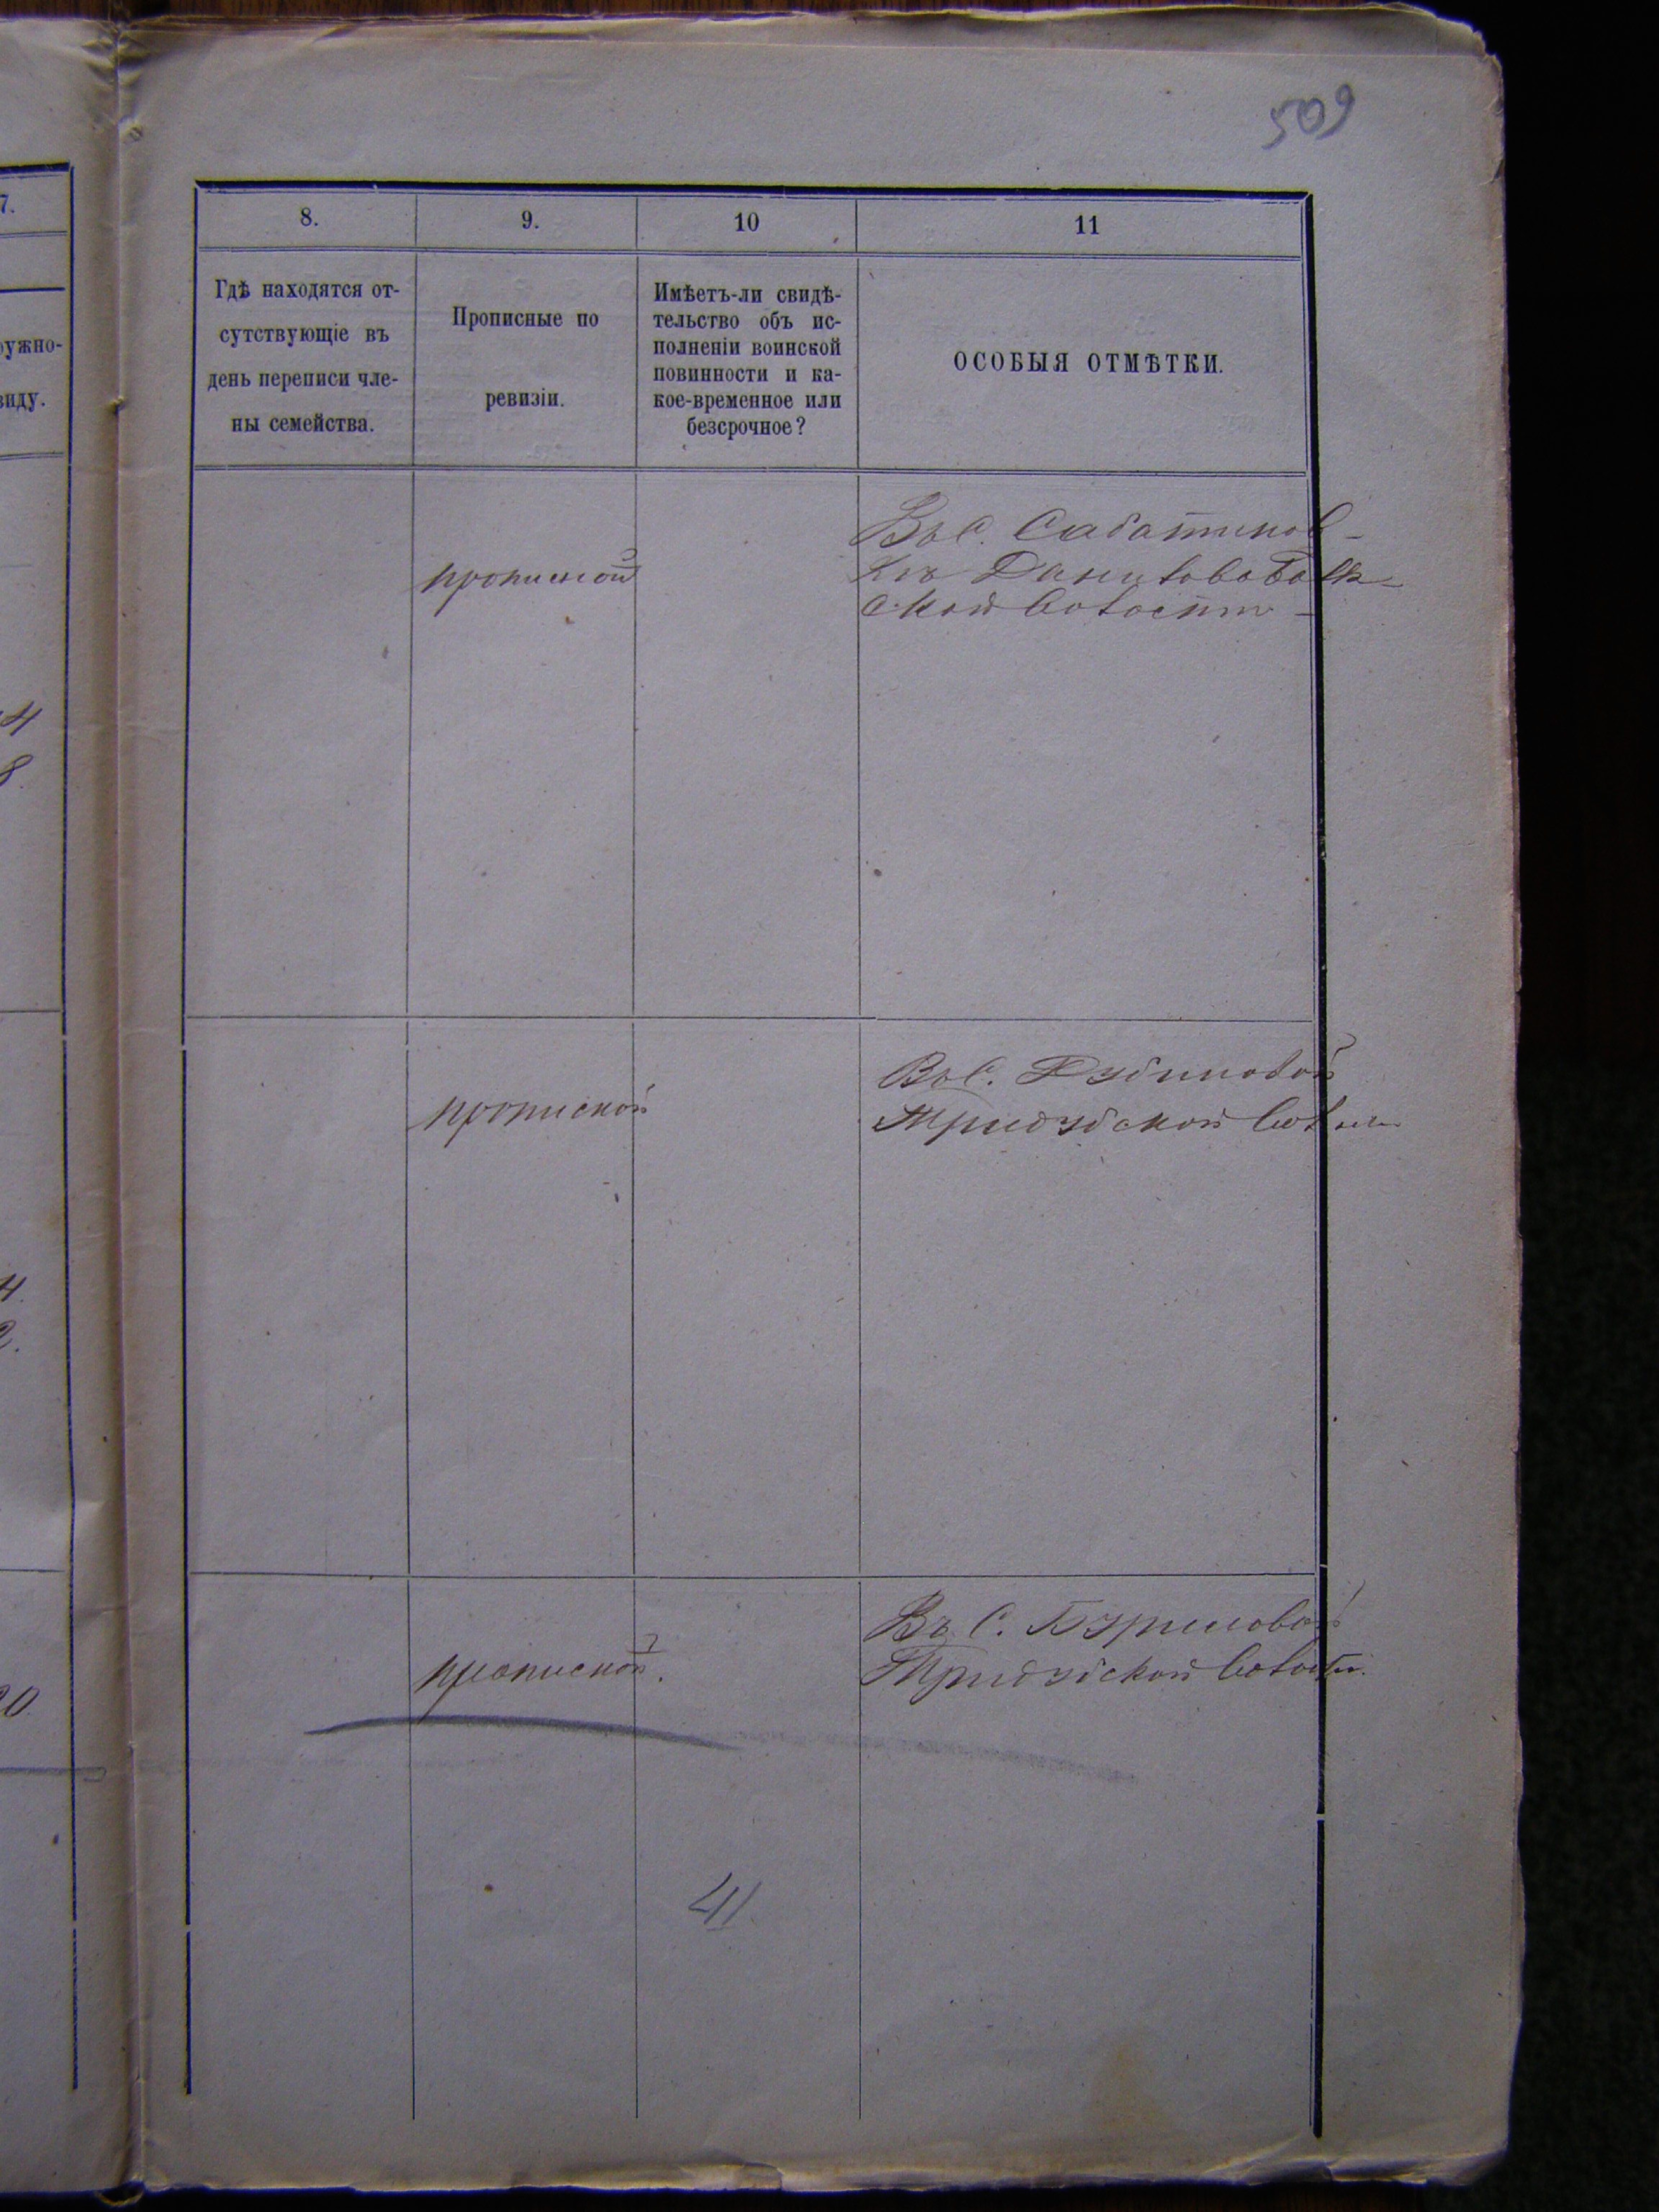 509
7.
8.
9.
10
11
ружно-
виду.
Гдѣ находятся от-
сутствующіе въ
день переписи чле-
ны семейства.
Прописные по
ревизіи.
Имѣетъ-ли свидѣ-
тельство объ ис-
полненіи воинской
повинности и ка-
кое-временное или
безсрочное?
ОСОБЫЯ ОТМѢТКИ.
прописной
Въ С. Сабатинов-
кѣ Даниловобалк-
ской волости
4
8
прописной
Въ С.
Тридубской
4.
2.
прописной.
Въ С. Буриловой
Тридубской волости.
20
41